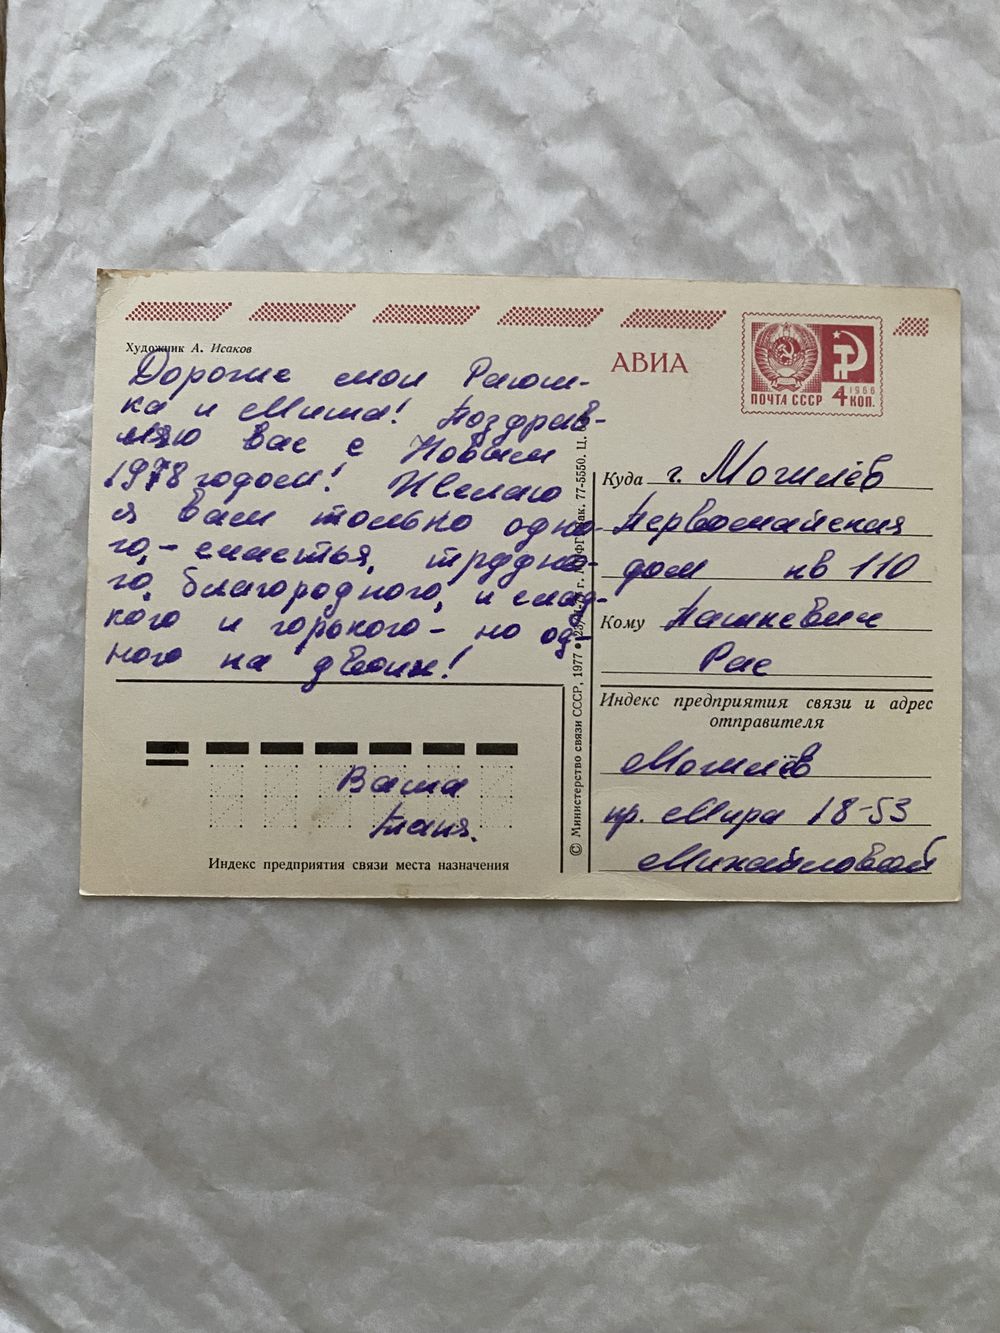 Художник А. Исаков
АВИА
ПОЧТА СССР
1966
4 КОП.
Дорогие мои Раюш-
ка и Миша! Поздрав-
ляю вас с Новым
1978 годом! Желаю
я вам только одно-
го, - счастья, трудно-
го, благородного, и слад-
кого и горького - но од-
ного на двоих!
Ваша
Таня.
Индекс предприятия связи места назначения
© Министерство связи СССР, 1977
77-5550. Ц.
Куда г. Могилёв
Первомайская
дом кв 110
Кому Пашкевич
Рае
Индекс предприятия связи и адрес
отправителя
Могилёв
пр. Мира 18-53
Михайловой